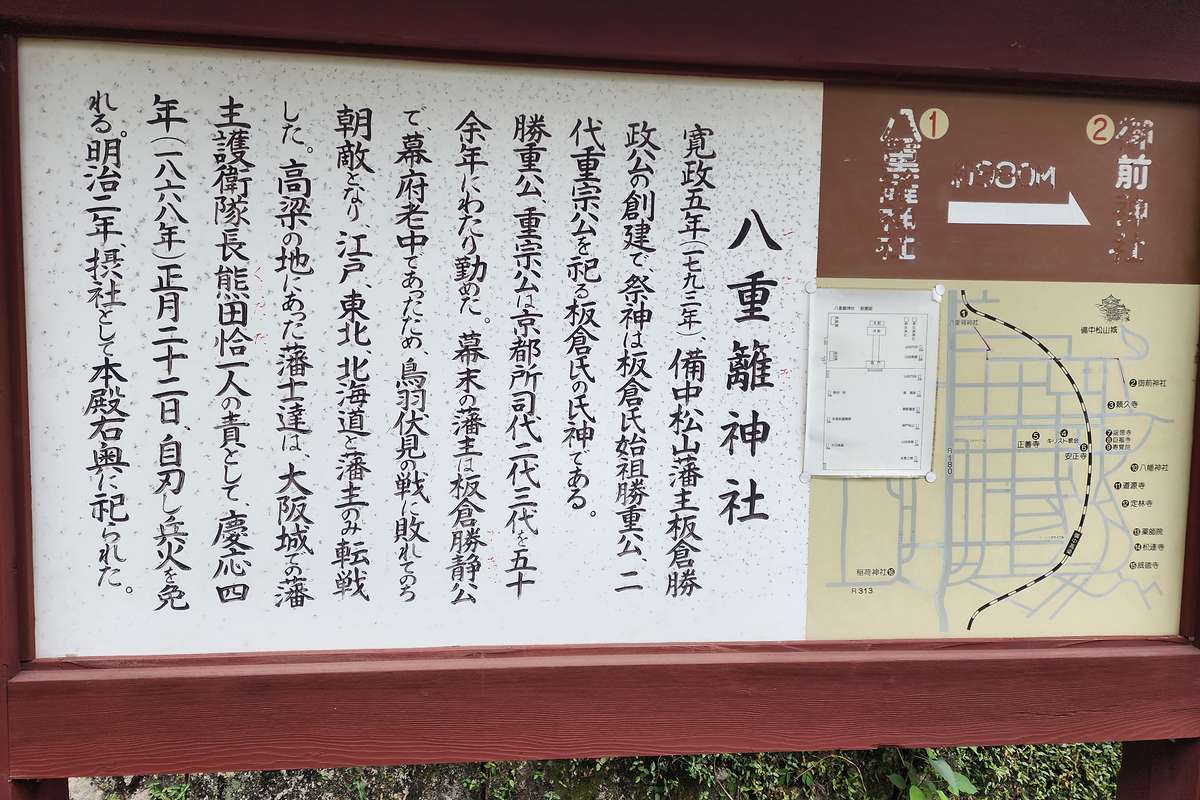 八重籬神社
寛政五年（一七九三年）、備中松山藩主板倉勝
政公の創建で、祭神は板倉氏始祖勝重公、二
代重宗公を祀る板倉氏の氏神である。
勝重公、重宗公は京都所司代二代三代を五十
余年にわたり勤めた。幕末の藩主は板倉勝静公
で、幕府老中であったため、鳥羽伏見の戦に敗れてのち
朝敵となり、江戸、東北、北海道と藩主のみ転戦
した。高梁の地にあった藩士達は、大阪城での藩
主護衛隊長熊田恰一人の責として、慶応四
年（一八六八年）正月二十二日、自刃し兵火を免
れる。明治二年摂社として本殿右奥に祀られた。
② 御前神社
980M
① 八重籬神社
備中松山城
①
八重籬神社
②御前神社
③頼久寺
④
キリスト教会
⑤
正善寺
⑥
安正寺
⑦
⑧
⑨
⑩八幡神社
⑪道源寺
⑫定林寺
⑬薬師院
⑭松連寺
⑮威徳寺
稲荷神社⑯
R180
R313